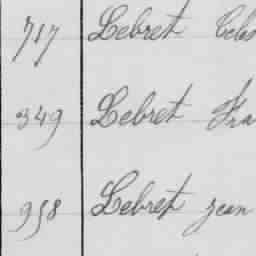 717 Lebret
349 Lebret Fra
958 Lebret Jean